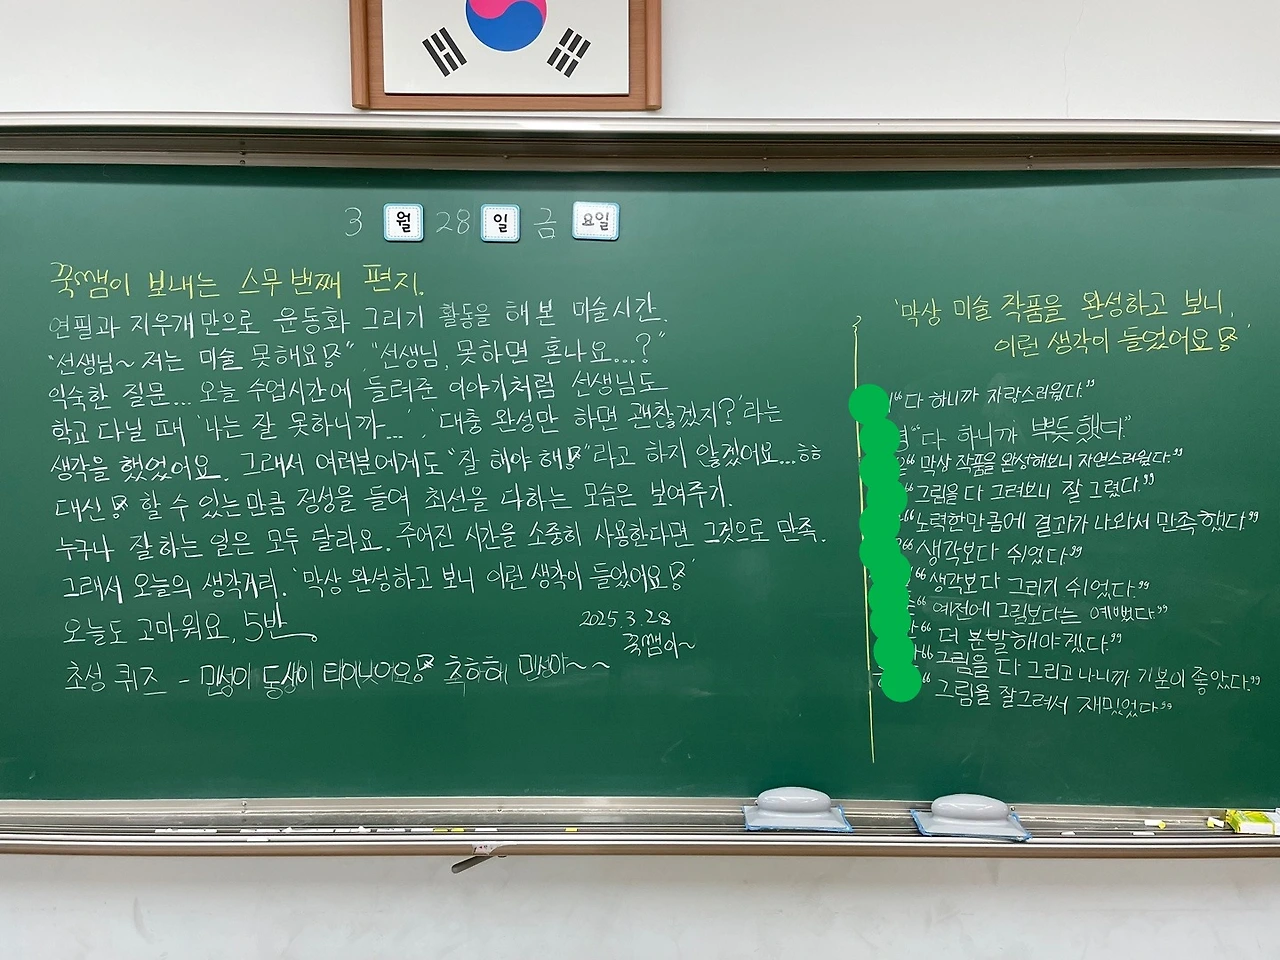 3 월 28 일 금 요일
꾹쌤이 보내는 스무 번째 편지.
연필과 지우개만으로 운동화 그리기 활동을 해 본 미술시간.
"선생님~ 저는 미술 못해요!" , "선생님, 못하면 혼나요...?"
익숙한 질문... 오늘 수업시간에 들려준 이야기처럼 선생님도
학교 다닐 때 '나는 잘 못하니까...', '대충 완성만 하면 괜찮겠지?'라는
생각을 했었어요. 그래서 여러분에게도 "잘 해야 해!"라고 하지 않겠어요...ㅎㅎ
대신! 할 수 있는 만큼 정성을 들여 최선을 다하는 모습은 보여주기.
누구나 잘하는 일은 모두 달라요. 주어진 시간을 소중히 사용한다면 그것으로 만족.
그래서 오늘의 생각거리. '막상 완성하고 보니 이런 생각이 들었어요!'
오늘도 고마워요, 5반.
2025.3.28
꾹쌤이~
초성 퀴즈 - 민성이 동생이 태어났어요! 축하해 민성아~~
'막상 미술 작품을 완성하고 보니,
이런 생각이 들었어요!'
"다 하니까 자랑스러웠다."
"다 하니까 뿌듯했다"
"막상 작품을 완성해보니 자연스러웠다."
"그림을 다 그려보니 잘 그렸다."
"노력한만큼에 결과가 나와서 만족했다"
"생각보다 쉬었다."
"생각보다 그리기 쉬었다."
"예전에 그림보다는 예뻤다."
"더 분발해야겠다."
"그림을 다 그리고나니까 기분이 좋았다."
"그림을 잘그려서 재밌었다."